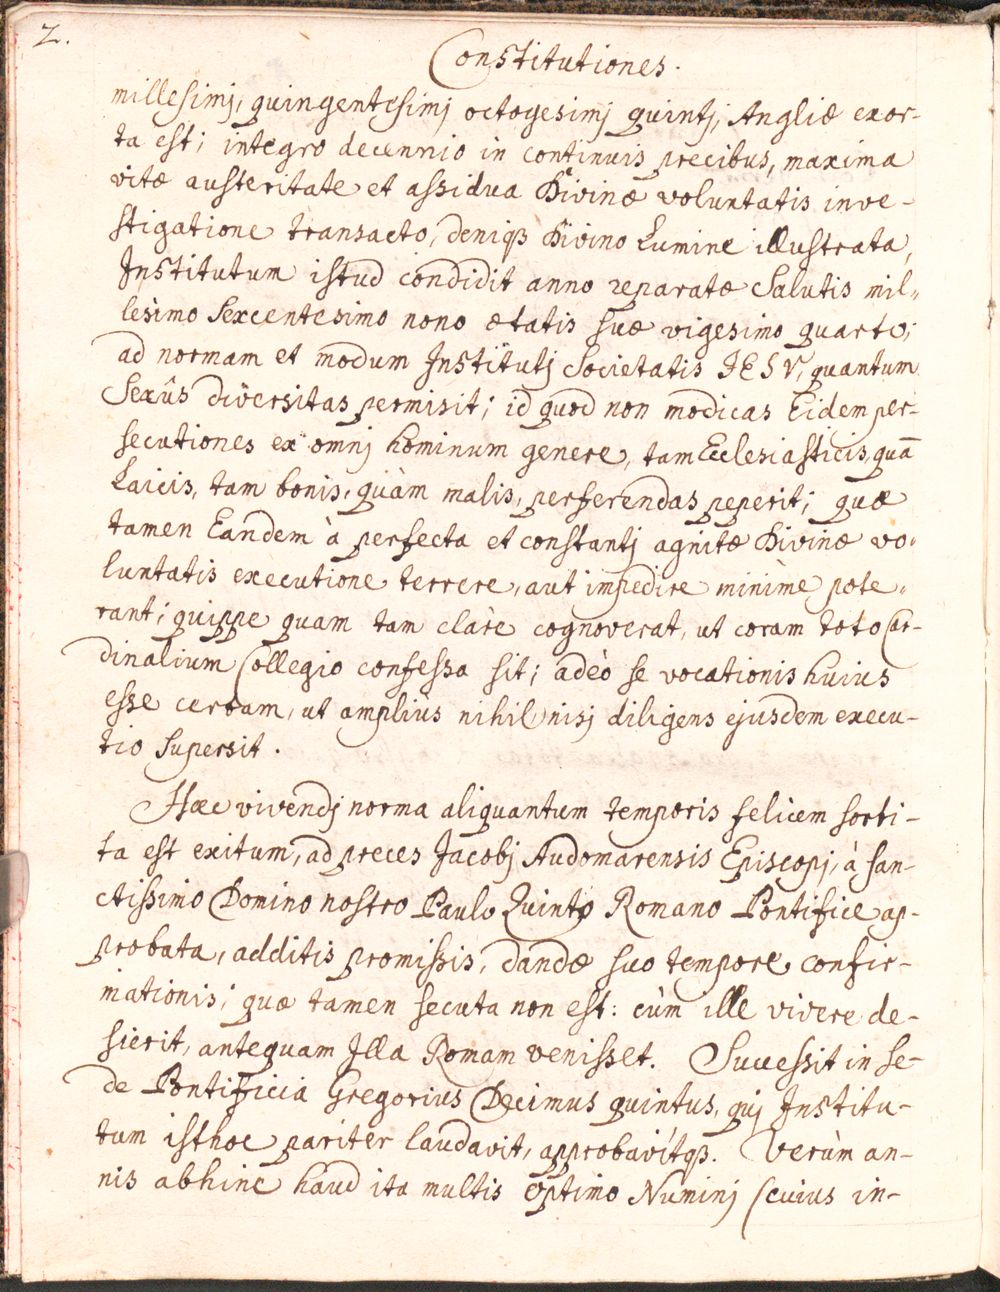 2.
Constitutiones.
millesimj, quingentesimj octogesimj quintj, Angliæ exor-
ta est; integro decennio in continuis precibus, maxima
vitæ austeritate et assidua Divinæ voluntatis inve-
stigatione transacto, deniqȝ Divino Lumine illustrata,
Institutum istud condidit anno reparatæ Salutis mil-
lesimo Sexcentesimo nono ætatis suæ vigesimo quarto;
ad normam et modum Institutj Societatis JESV, quantum
Sexûs diversitas permisit; id quod non modicas Eidem per-
secutiones ex omnj hominum genere, tam Ecclesiasticis, quā
Laicis, tam bonis, quàm malis, perferendas peperit; quæ
tamen Eandem à perfecta et constantj agnitæ Divinæ vo-
luntatis executione terrere, aut impedire minìme pote-
rant; quippe quam tam clàre cognoverat, ut coram toto Car-
dinalium Collegio confessa sit; adèo se vocationis huius
esse certam, ut amplius nihil nisj diligens ejusdem execu-
tio supersit.
Hæc vivendj norma aliquantum temporis felicem sorti-
ta est exitum, ad preces Jacobj Audomarensis Episcopj, à san-
ctissimo Domino nostro Paulo Quinto Romano Pontifice ap-
probata, additis promissis, dandæ suo tempore confir-
mationis; quæ tamen secuta non est: cùm ille vivere de-
sierit, antequam Illa Romam venisset. Successit in se-
de Pontificia Gregorius Decimus quintus, quj Institu-
tum isthoc pariter laudavit, approbavítqȝ. Verùm an-
nis abhinc haud ita multis optimo Numinj (cuius in-